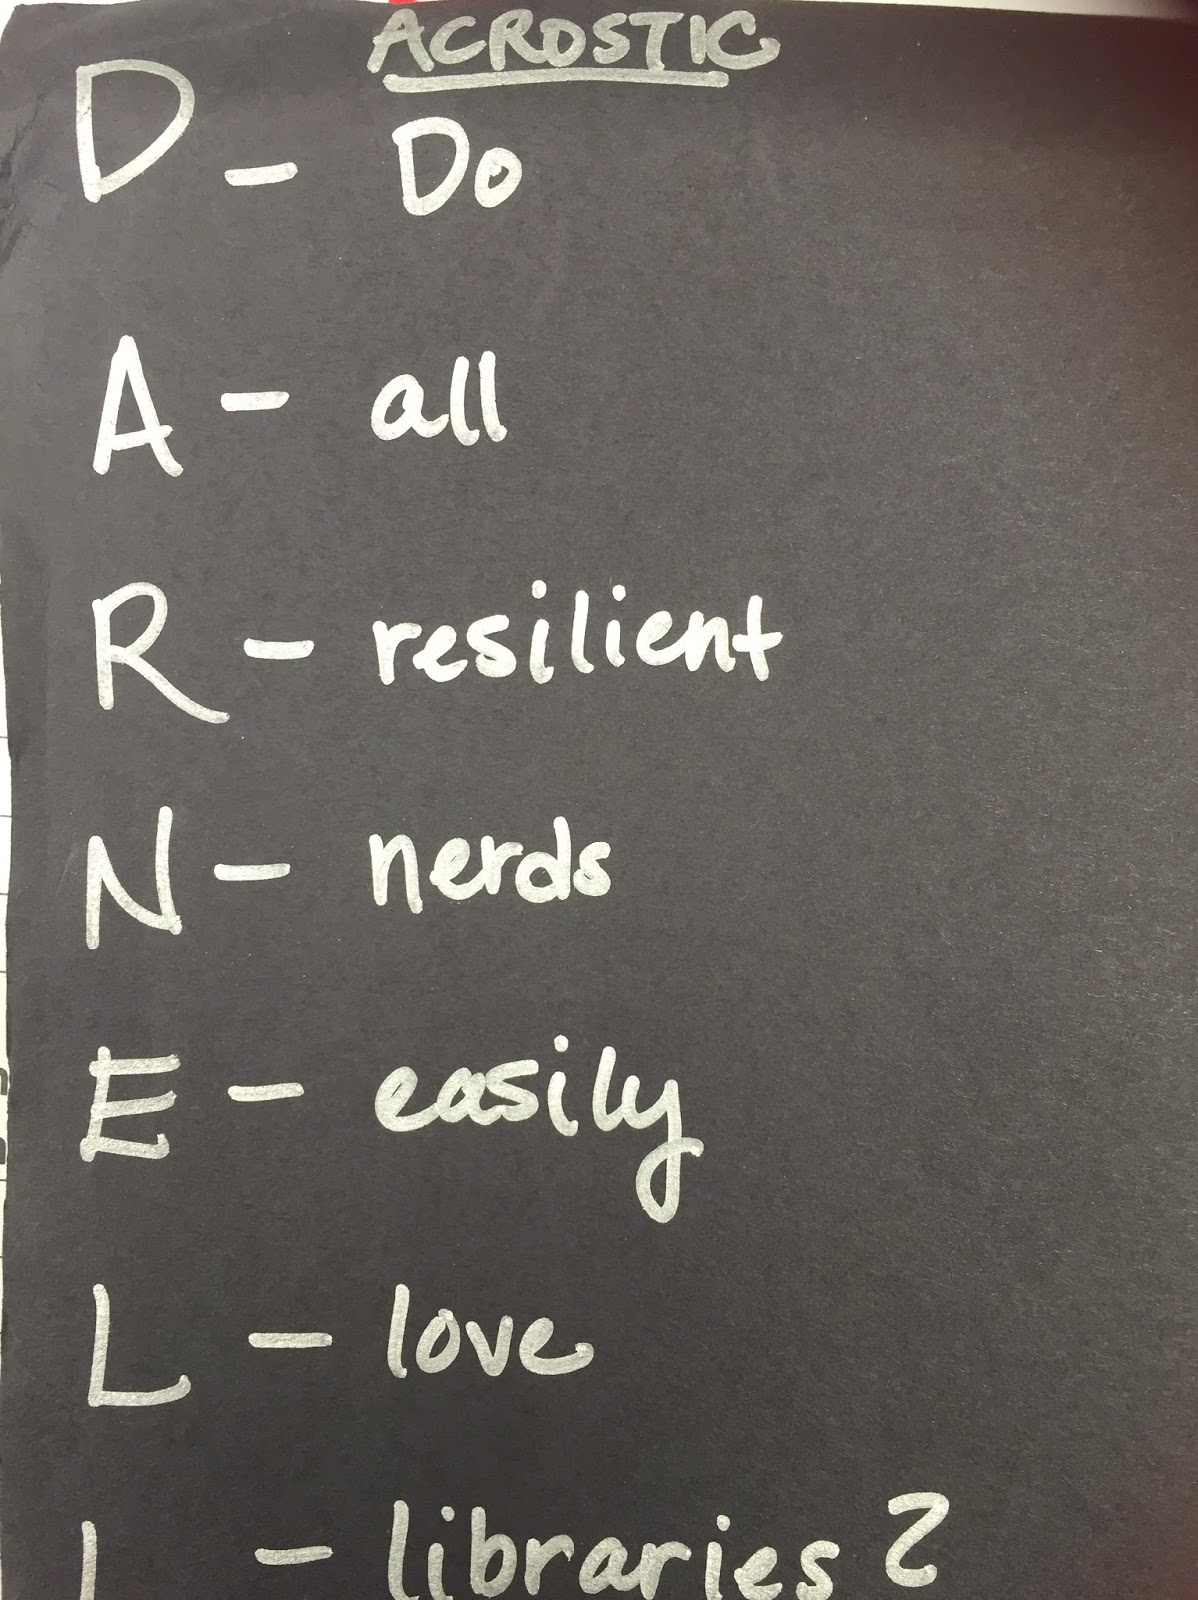 ACROSTIC
D - Do
A - all
R - resilient
N - nerds
E - easily
L - love
L - libraries?